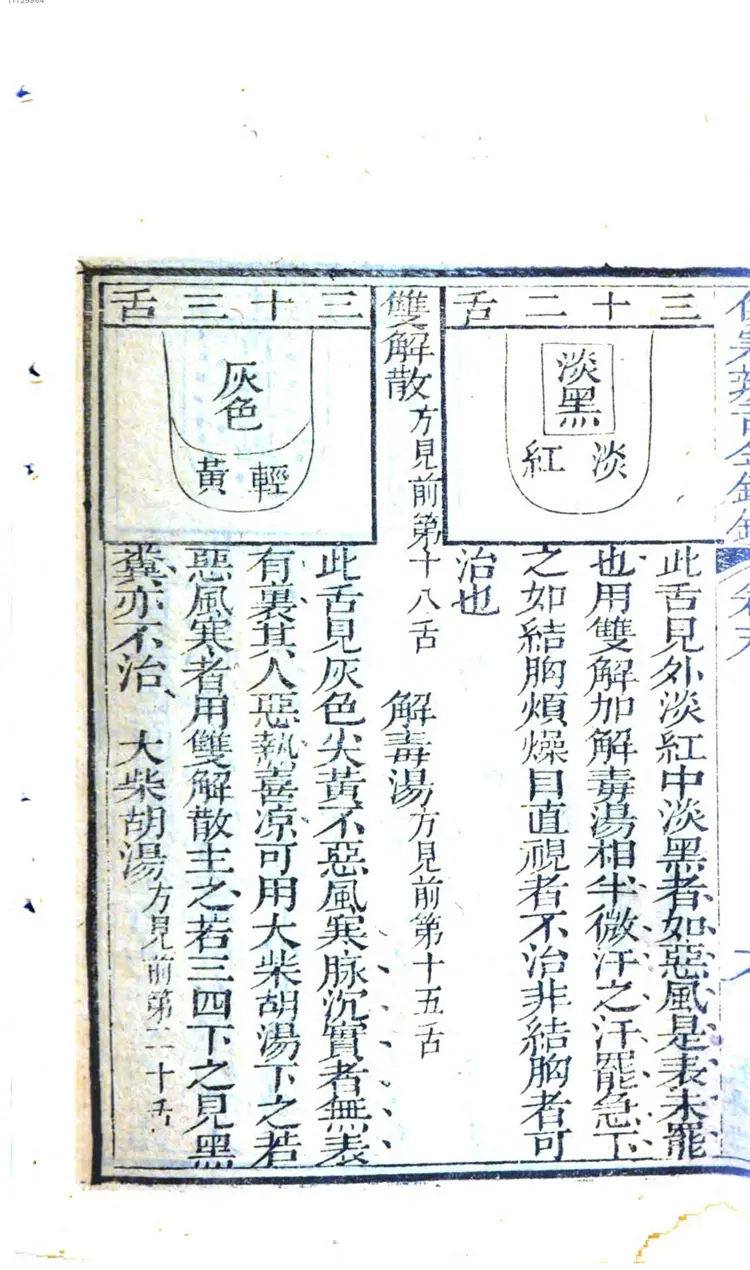 11129964
三十二舌
淡黑
淡紅
此舌見外淡紅中淡黑者如惡風是表未罷
也用雙解加解毒湯相半微汗之汗罷急下
之如結胸煩燥目直視者不治非結胸者可
治也
雙解散方見前第十八舌 解毒湯方見前第十五舌
三十三舌
灰色
輕黃
此舌見灰色尖黃不惡風寒脉沉實者無表
有裏其人惡熱喜凉可用大柴胡湯下之若
惡風寒者用雙解散主之若三四下之見黑
糞亦不治 大柴胡湯方見前第二十舌